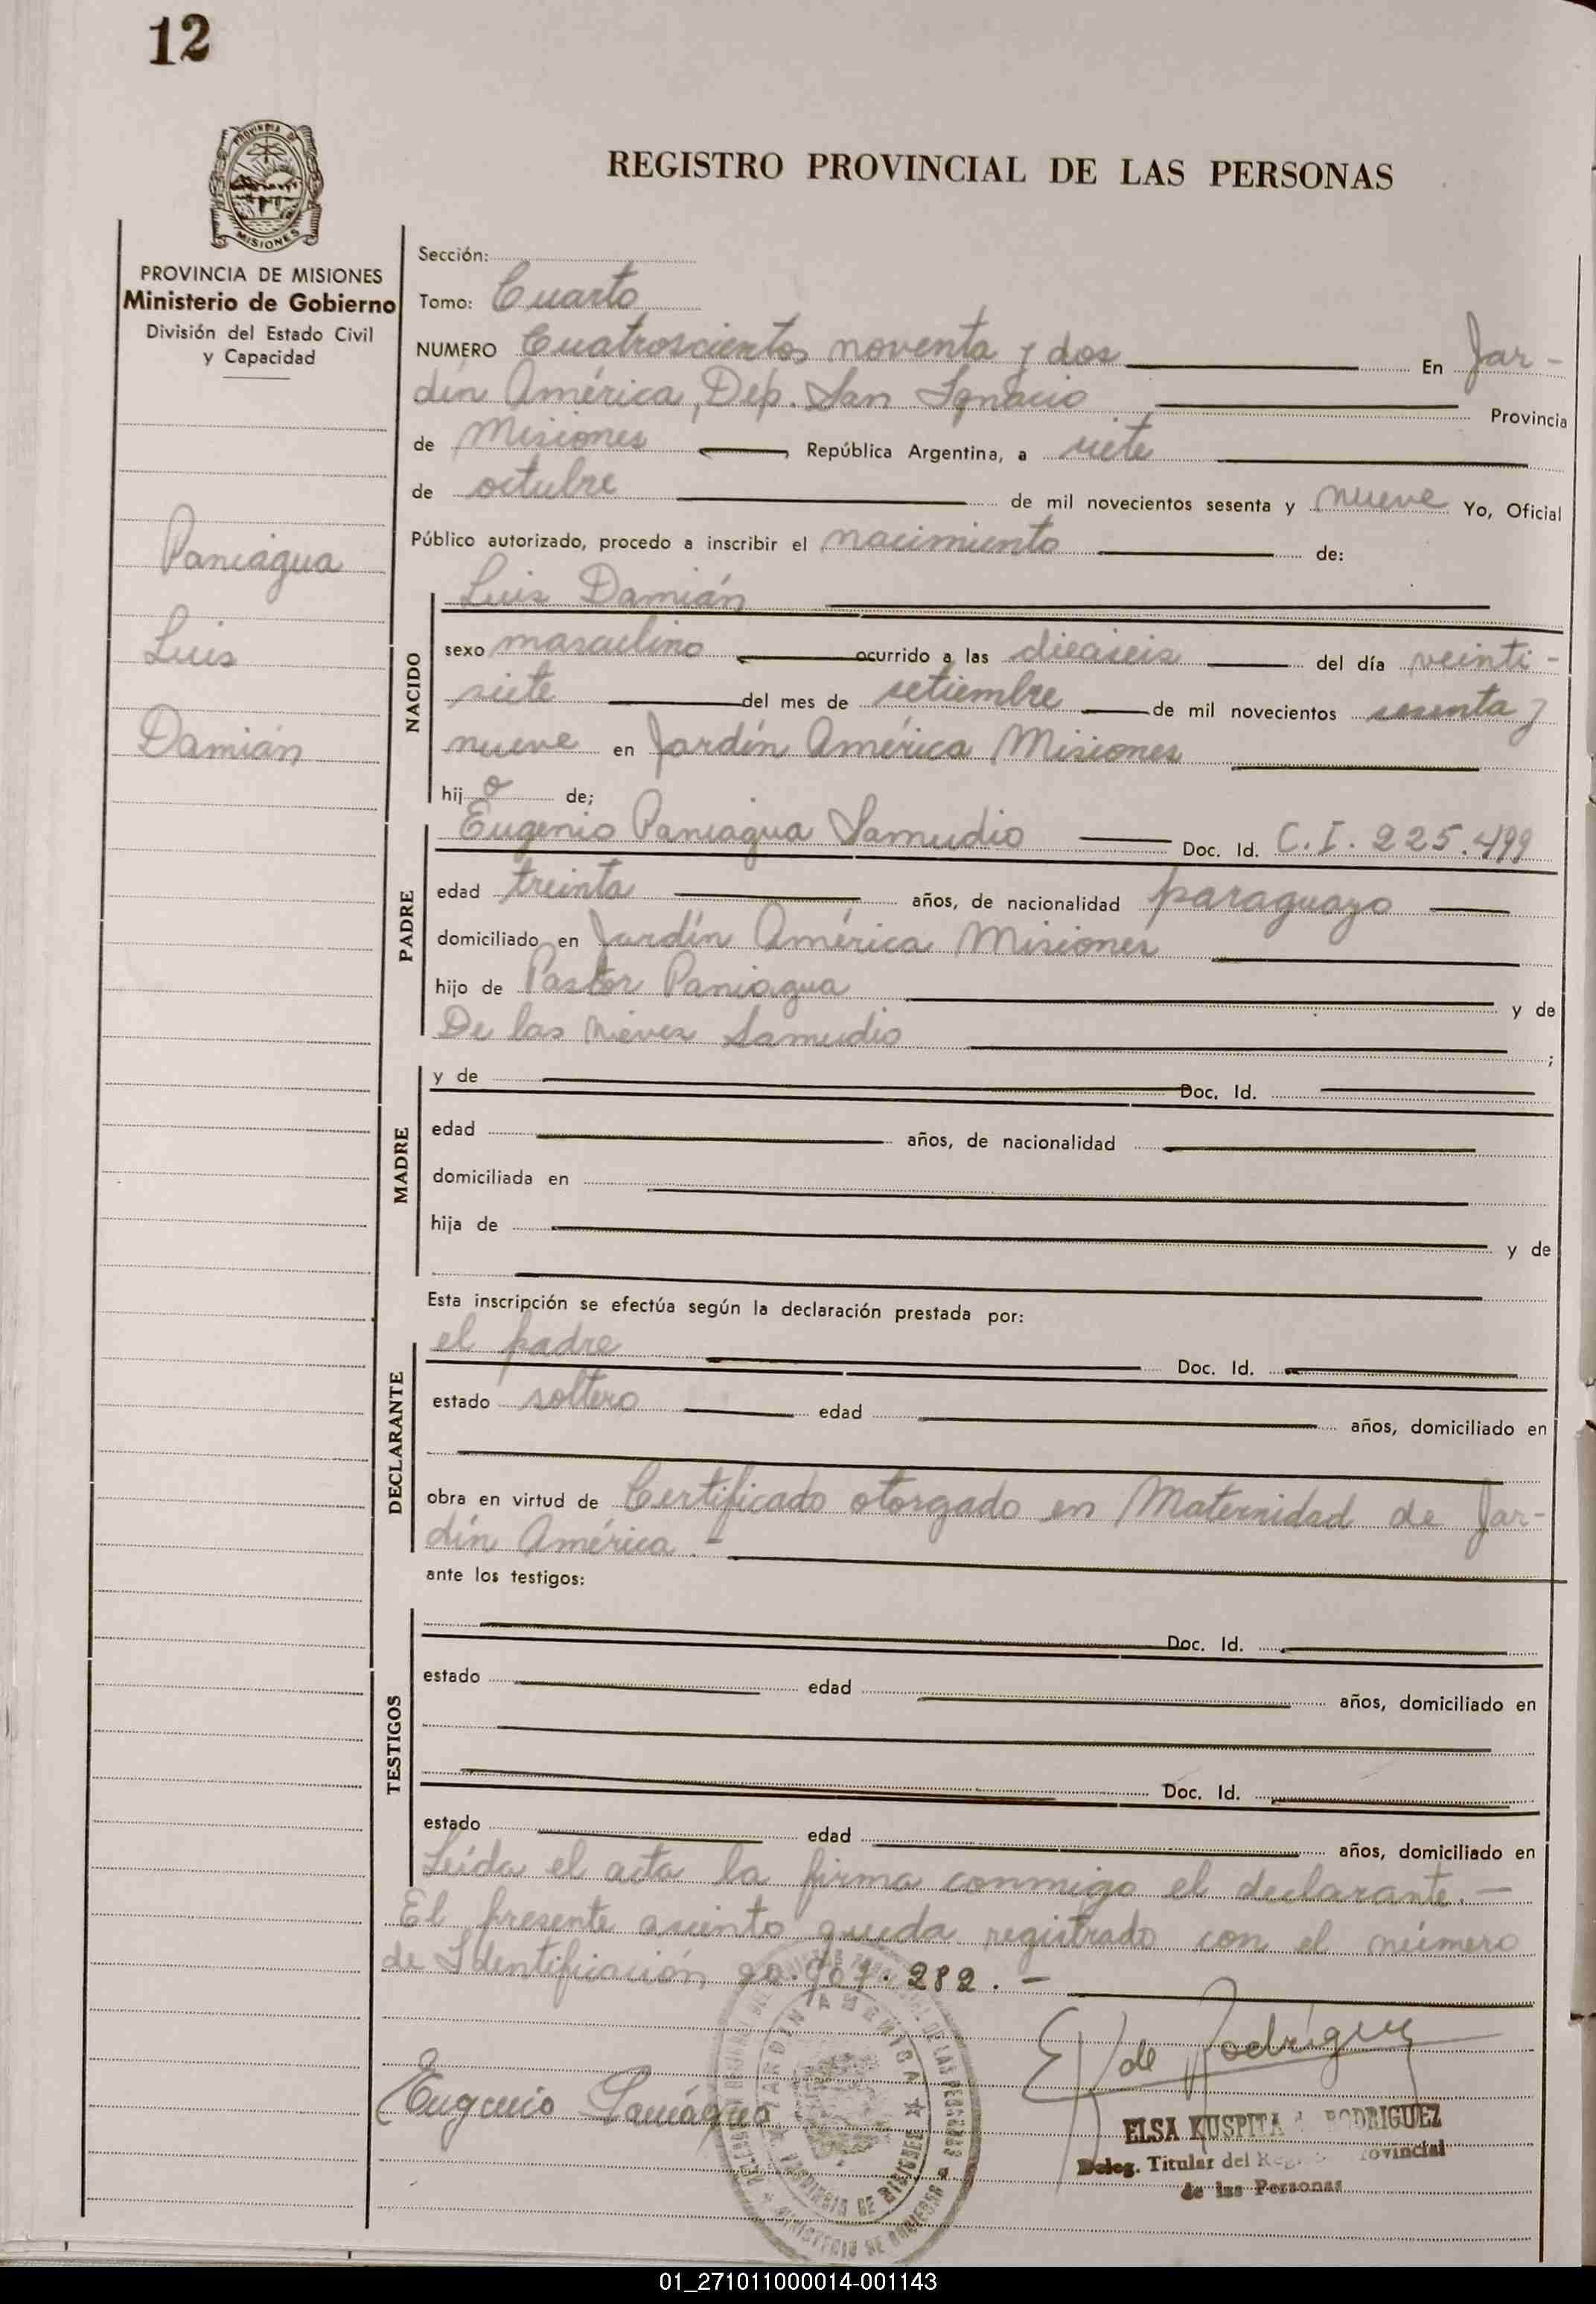 12
PROVINCIA DE
MISIONES
REGISTRO PROVINCIAL DE LAS PERSONAS
PROVINCIA DE MISIONES
Ministerio de Gobierno
División del Estado Civil
y Capacidad
Paniagua
Luis
Damián
Sección:
Tomo: Cuarto
NUMERO Cuatroscientos noventa y dos En Jar-
dín América, Dep. San Ignacio Provincia
de Misiones República Argentina, a siete
de octubre de mil novecientos sesenta y nueve Yo, Oficial
Público autorizado, procedo a inscribir el nacimiento de:
NACIDO
Luis Damián
sexo masculino ocurrido a las dieciseis del día veinti-
siete del mes de setiembre de mil novecientos sesenta y
nueve en Jardín América Misiones
hij o de;
PADRE
Eugenio Paniagua Samudio Doc. Id. C.I. 225.499
edad treinta años, de nacionalidad paraguayo
domiciliado en Jardín América Misiones
hijo de Pastor Paniagua y de
De las Nieves Samudio ;
MADRE
y de Doc. Id.
edad años, de nacionalidad
domiciliada en
hija de y de
Esta inscripción se efectúa según la declaración prestada por:
DECLARANTE
el padre Doc. Id.
estado soltero edad años, domiciliado en
obra en virtud de Certificado otorgado en Maternidad de Jar-
dín América.-
ante los testigos:
TESTIGOS
Doc. Id.
estado edad años, domiciliado en
Doc. Id.
estado edad años, domiciliado en
Leída el acta la firma conmigo el declarante.-
El presente asiento queda registrado con el número
de Identificación 20.907.282.-
Eugenio Paniagua
E K de Rodríguez
JARDIN AMERICA
PROVINCIA DE MISIONES
MINISTERIO DE GOBIERNO
DE LAS PERSONAS
ELSA KUSPITA RODRIGUEZ
Deleg. Titular del Reg. Provincial
de las Personas
01_271011000014-001143